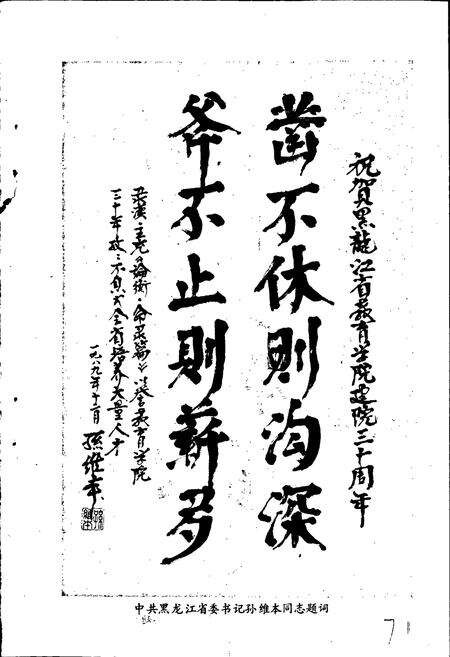 祝贺黑龍江省教育学院建院三十周年
凿不休则沟深
斧不止则薪多
录汉·王充《论衡·命录篇》以誉教育学院
三十年孜孜不息为全省培养大量人才
一九八九年十一月 孫维本
中共黑龙江省委书记孙维本同志题词
7